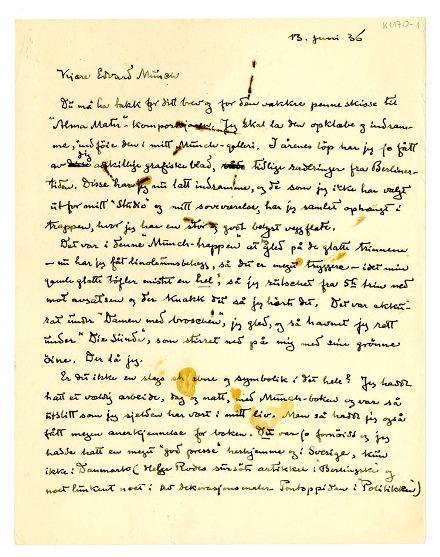 K 1170-1
13. juni 36
Kjære Edvard Munch
Du må ha takk for ditt brev og for den vakkre penneskisse til
"Alma Mater"-komposisjonen. Jeg skal la den opklæbe og indram-
me, indføie den i mitt Munch-galleri. I årenes löp har jeg jo fått
av dig adskillige grafiske blad, tidlige raderinger fra Berliner-
tiden. Disse har jeg nu latt indramme, og de som jeg ikke har valgt
ut for mitt "Studio" og mitt soveværelse, har jeg samlet ophängt i
trappen, hvor jeg har en stor og godt belyst veggflate.
Det var i denne Munch-trappen at gled på de glatte trinnene
– nu har jeg fåt linoleumsbelegg, så du er meget tryggere – idet min
gamle glatte töfler mistet en hel, så jeg rutschet fra 5te trin ned
mot avsatsen og der knakk det så jeg hørte det. Det var akku-
rat under "Damen med broschen", jeg gled, og så havnet jeg rett
under "Die Sünde", som stirret ned på mig med sine grönne
öine. Der lå jeg.
Er du ikke en slags skjebne og symbolik i det hele? Jeg hadde
hatt et voldsomt arbeide, dag og natt, med Munch-boken og var så
utslitt som jeg sjelden har vært i mitt liv. Men så hadde jeg også
fått megen anerkjennelse for boken. Du var jo fornöid og jeg
hadde hatt en meget "god presse" herhjemme og i Sverige, kun
ikke i Danmark (Helge Rodes sursöte artikkel i Berlingske og
noet lunkent noet i av dekorasjonsmaler Pontoppidan i "Politikken")